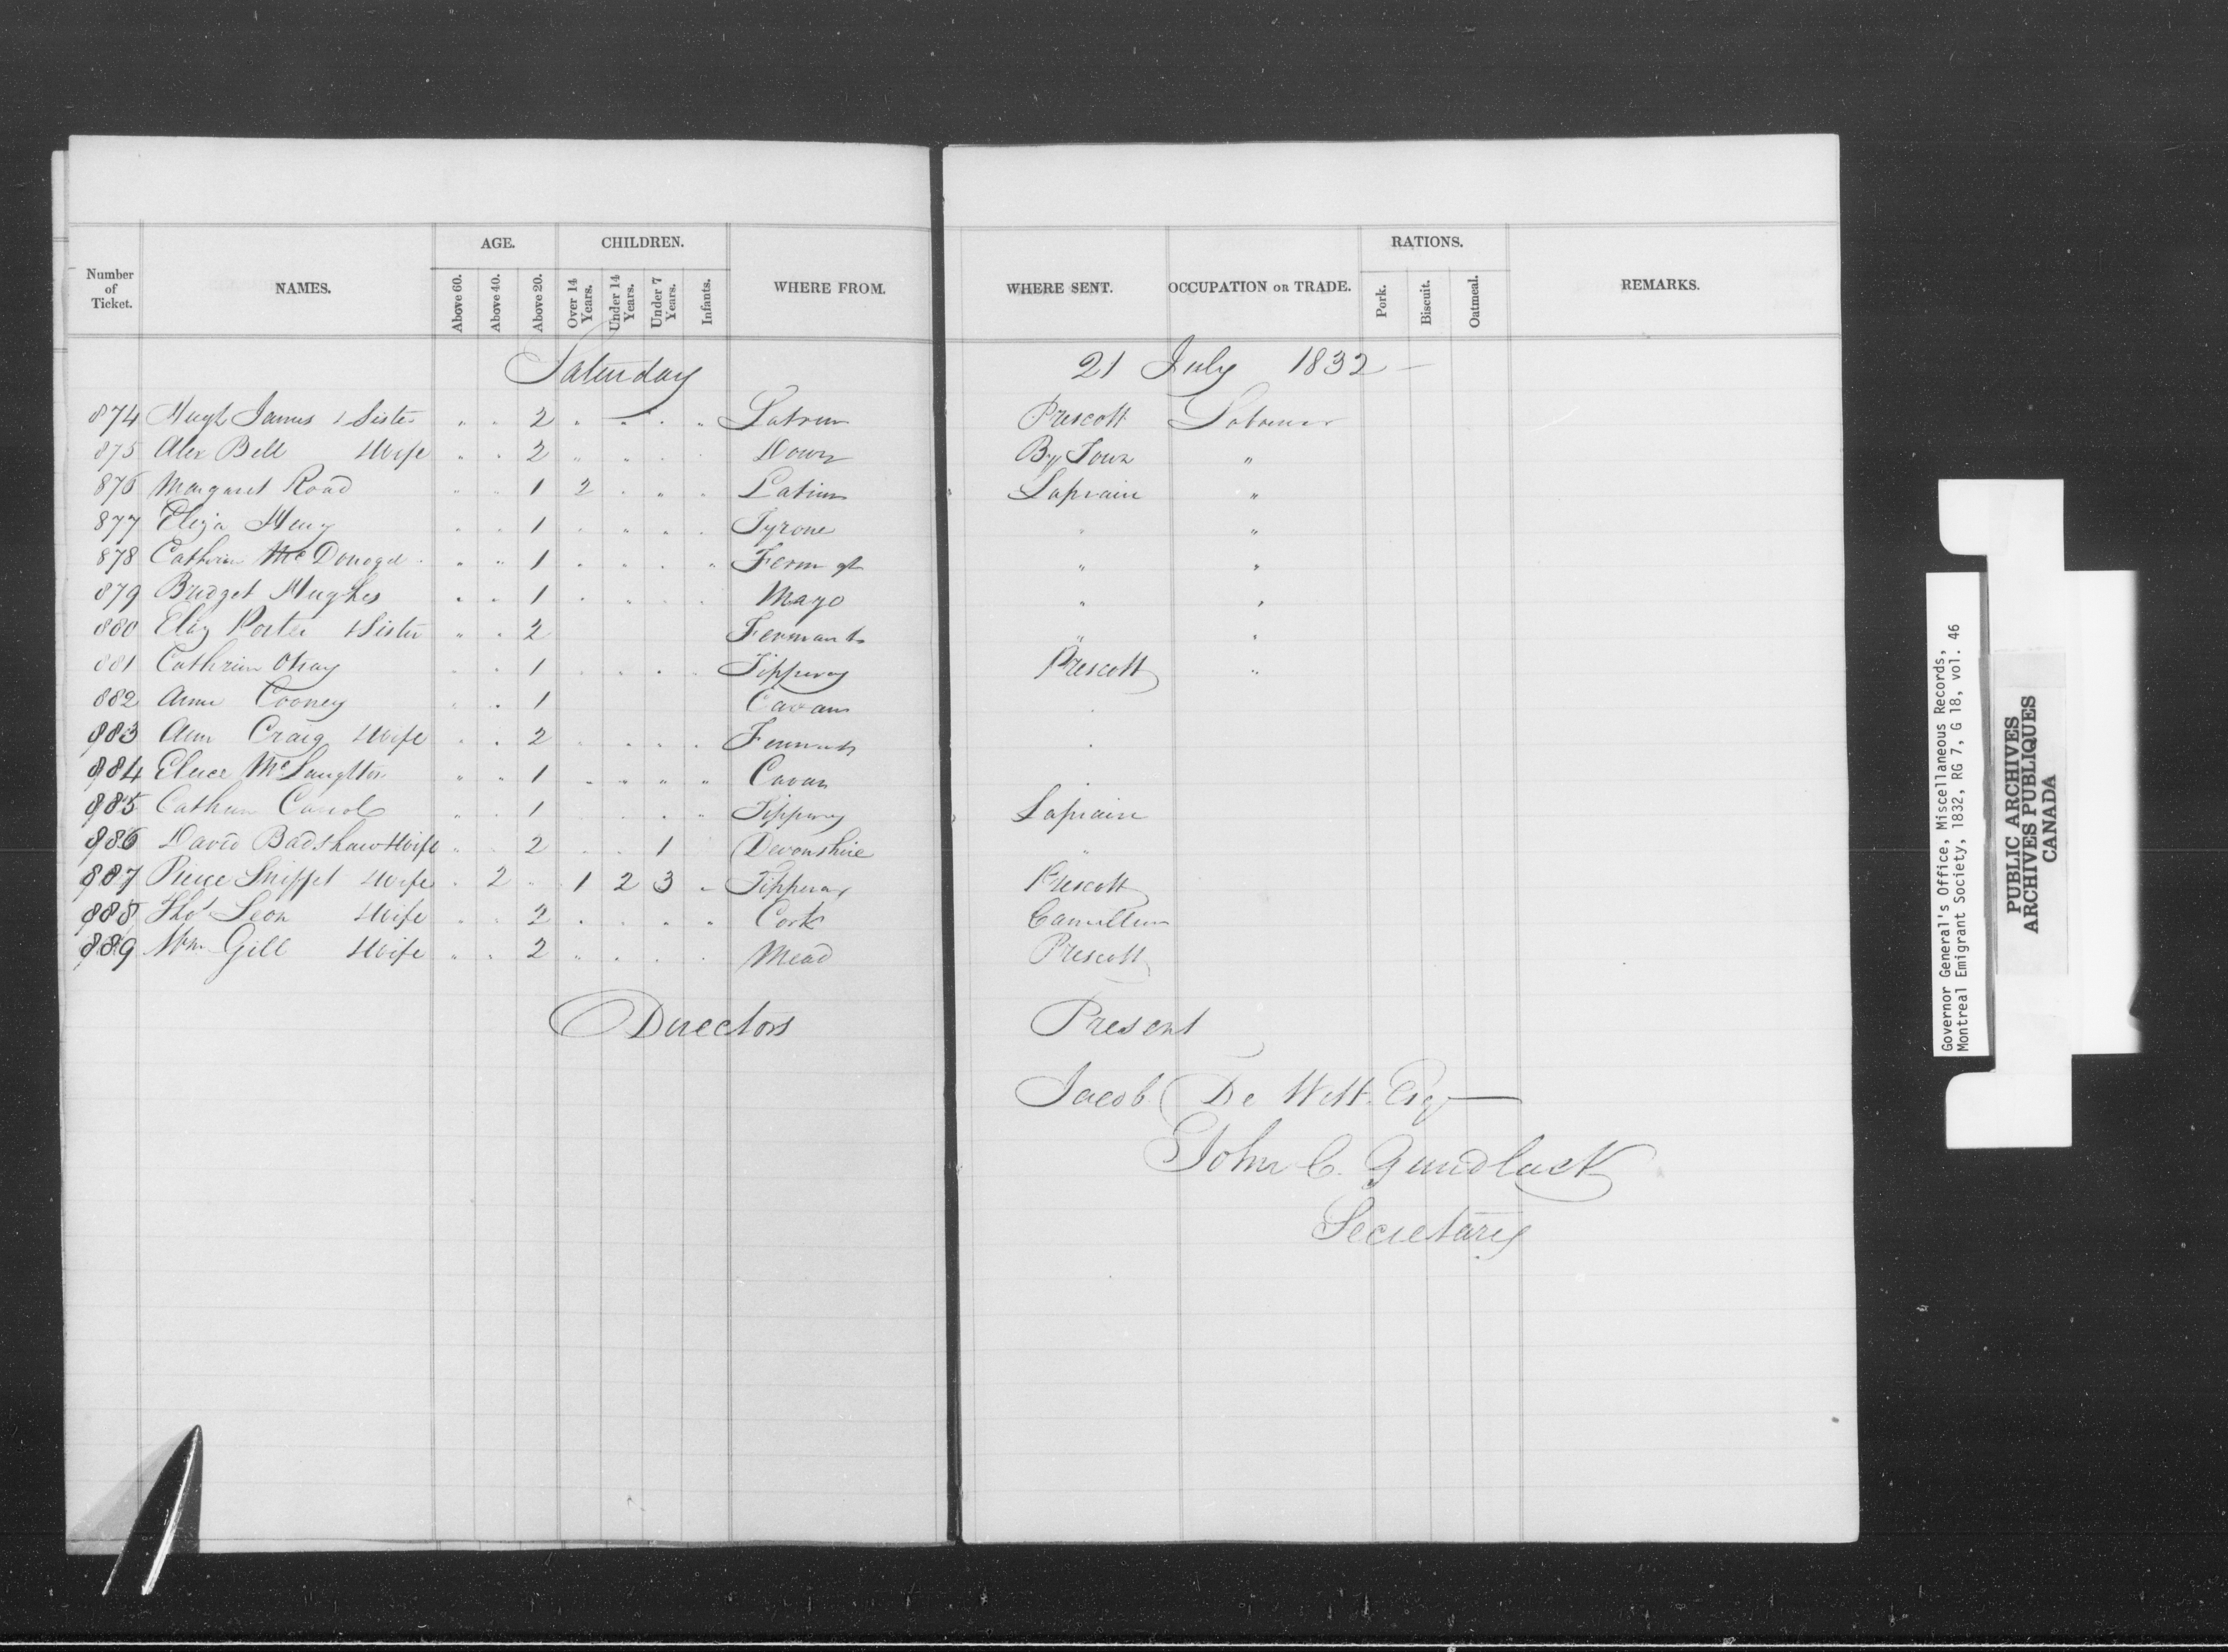 Number of Ticket. NAMES. AGE. Above 60. Above 40. Above 20. CHILDREN. Over 14 Years. Under 14 Years. Under 7 Years. Infants. WHERE FROM. WHERE SENT. OCCUPATION OR TRADE. RATIONS. Pork. Biscuit. Oatmeal. REMARKS.
Saturday 21 July 1832 —
874 Hugh James & Sister " " 2 " " " " Latrim Prescott Labourer
875 Alex Bell & Wife " " 2 " " " " Down By Town "
876 Margaret Road " " 1 2 " " " Latrim Laprairie "
877 Eliza Henry " " 1 " " " " Tyrone " "
878 Cathrin McDonogd " " 1 " " " " Ferm gh " "
879 Bridget Hughes " " 1 " " " " Mayo " "
880 Eliz Porter & Sister " " 2 " "
881 Cathrin " " 1 " " " " Tipperary Prescott "
882 Ann Cooney " " 1 Cavan "
883 Ann Craig & Wife " " 2 " " " " "
884 McLaughton " " 1 " " " " Cavan "
885 Cathrin Carrol " " 1 " " " " Tipperary Laprairie
886 David Badshaw & Wife " " 2 " " 1 Devonshire "
887 Pierce & Wife " 2 " 1 2 3 " Tipperary Prescott
888 Thos Leon & Wife " " 2 " " " " Cork
889 Wm Gill & Wife " " 2 " " " " Mead Prescott
Directors Present
Jacob De Witt Esqr —
John C. Gundlack
Secretary
Governor General's Office, Miscellaneous Records,
Montreal Emigrant Society, 1832, RG 7, G 18, vol. 46
PUBLIC ARCHIVES
ARCHIVES PUBLIQUES
CANADA